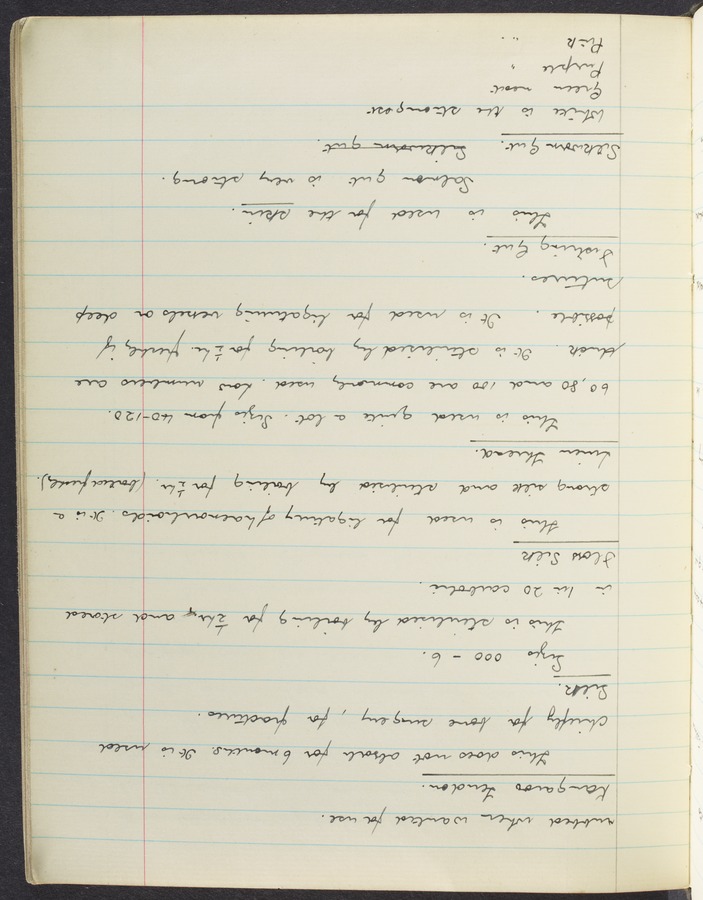 rubbed when wanted for use.
Kangaroo Tendon.
This does not absorb for 6 months. It is used
chiefly for bone surgery, for fractures.
Silk.
Sizes 000 - 6.
This is sterilised by boiling for ½ hr, and stored
in 1 in 20 carbolic.
Floss Silk
This is used for ligaturing of haemorrhoids. It is a
strong silk and sterilised by boiling for ½ hr. (boiled freshly).
Linen Thread.
This is used quite a lot. Sizes from 40-120.
60, 80 and 100 are commonly used. Low numbers are
thick. It is sterilised by boiling for ½ hr. freshly if
possible. It is used for ligaturing vessels or deep
sutures.
Fishing Gut.
This is used for the skin.
Salmon gut is very strong.
Silkworm Gut. Silkworm gut.
White is the strongest
Green next
Purple "
Pink "